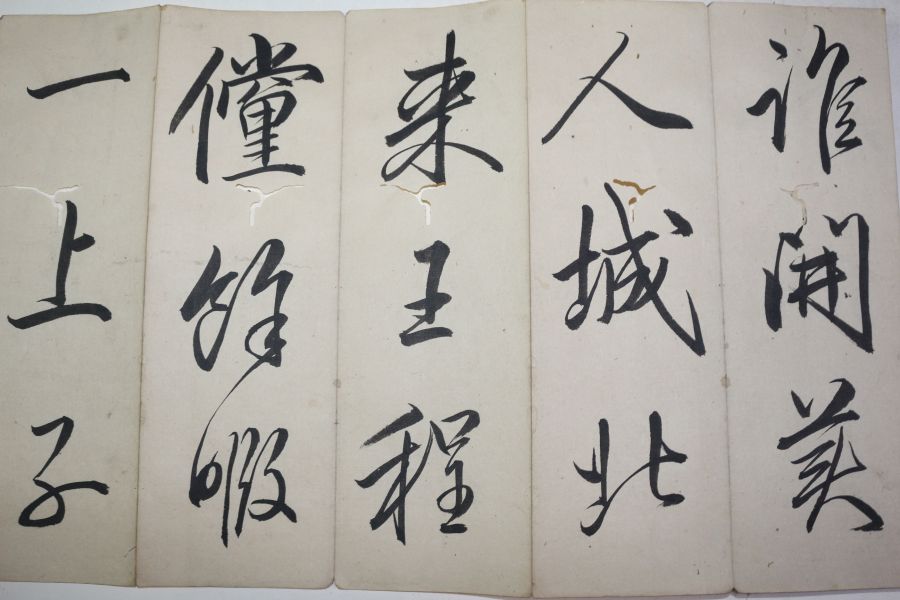 誰開美
人城北
来王程
儻餘暇
一上子